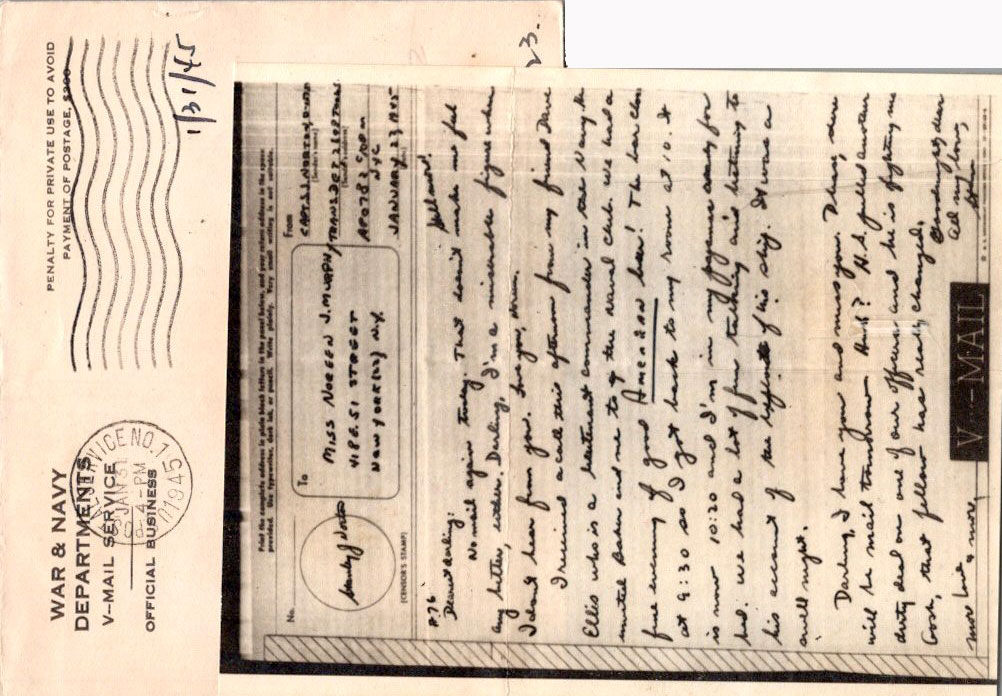 WAR & NAVY
DEPARTMENTS
V-MAIL SERVICE
OFFICIAL BUSINESS
SERVICE NO. 1
JAN 31
4-PM
1945
PENALTY FOR PRIVATE USE TO AVOID
PAYMENT OF POSTAGE, $300
1/31/45
23.
Print the complete address in plain block letters in the panel below, and your return address in the space
provided. Use typewriter, dark ink, or pencil. Write plainly. Very small writing is not suitable.
No.
(CENSOR'S STAMP)
To
MISS NOREEN J. MURPHY
418 E. 51 STREET
NEW YORK (22) N.Y.
From
CAPT. S. J. NORTON
(Sender's name)
TRAN
APO 782 C/O PM
NYC
JANUARY 23 1945
#76
Dearest darling:
No mail again today. That doesn't make me feel
any better, either. Darling, I'm a miserable figure when
I don't hear from you. Love you, hon.
I received a call this afternoon from my friend Dave
Ellis who is a lieutenant commander in the Navy. He
invited Baker and me to the Naval Club. We had a
fine evening of good AMERICAN beer! The bar closed
at 9:30 so I got back to my room at 10. It
is now 10:20 and I'm in my pajamas ready for
bed. We had a lot of fun talking and listening to
his account of the of his ship. It was a
swell night.
Darling, I love you and miss you. there
will be mail tomorrow H.A. pulled another
dirty deal on one of our officers and he is fighting mad
Gosh, that fellow has really changed.
All my love,
more love & more
V-MAIL